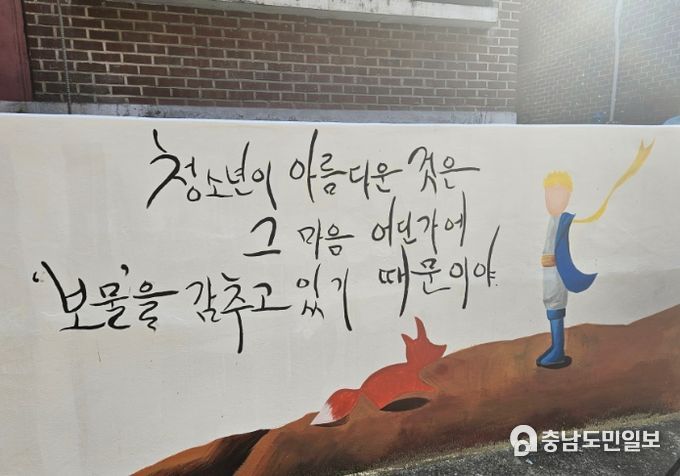 청소년이 아름다운 것은
그 마음 어딘가에
'보물'을 감추고 있기 때문이야
충남도민일보